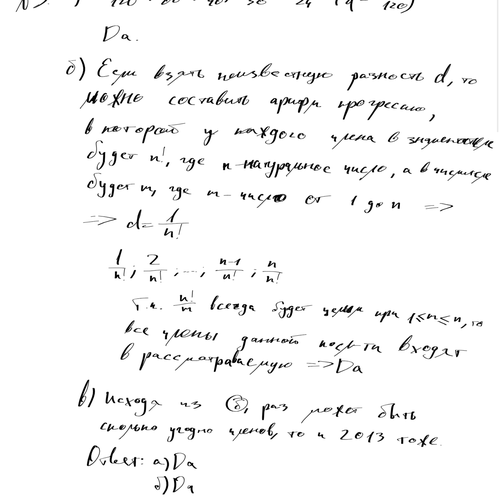 Da.
б) Если взять неизвестную разность d, то
можно составить арифм прогрессию,
в которой у каждого члена в знаменателе
будет n!, где n-натуральное число, а в числителе
будет m, где m - число от 1 до n =>
=> d = 1/n!
1/n!; 2/n!; ...; n-1/n!; n/n!
т.к. n!/n всегда будет целым при 1≤n≤n, то
все члены данной посл-ти входят
в рассматриваемую => Da
в) Исходя из б, раз может быть
сколько угодно членов, то и 2013 тоже.
Ответ: а) Da
б) Da